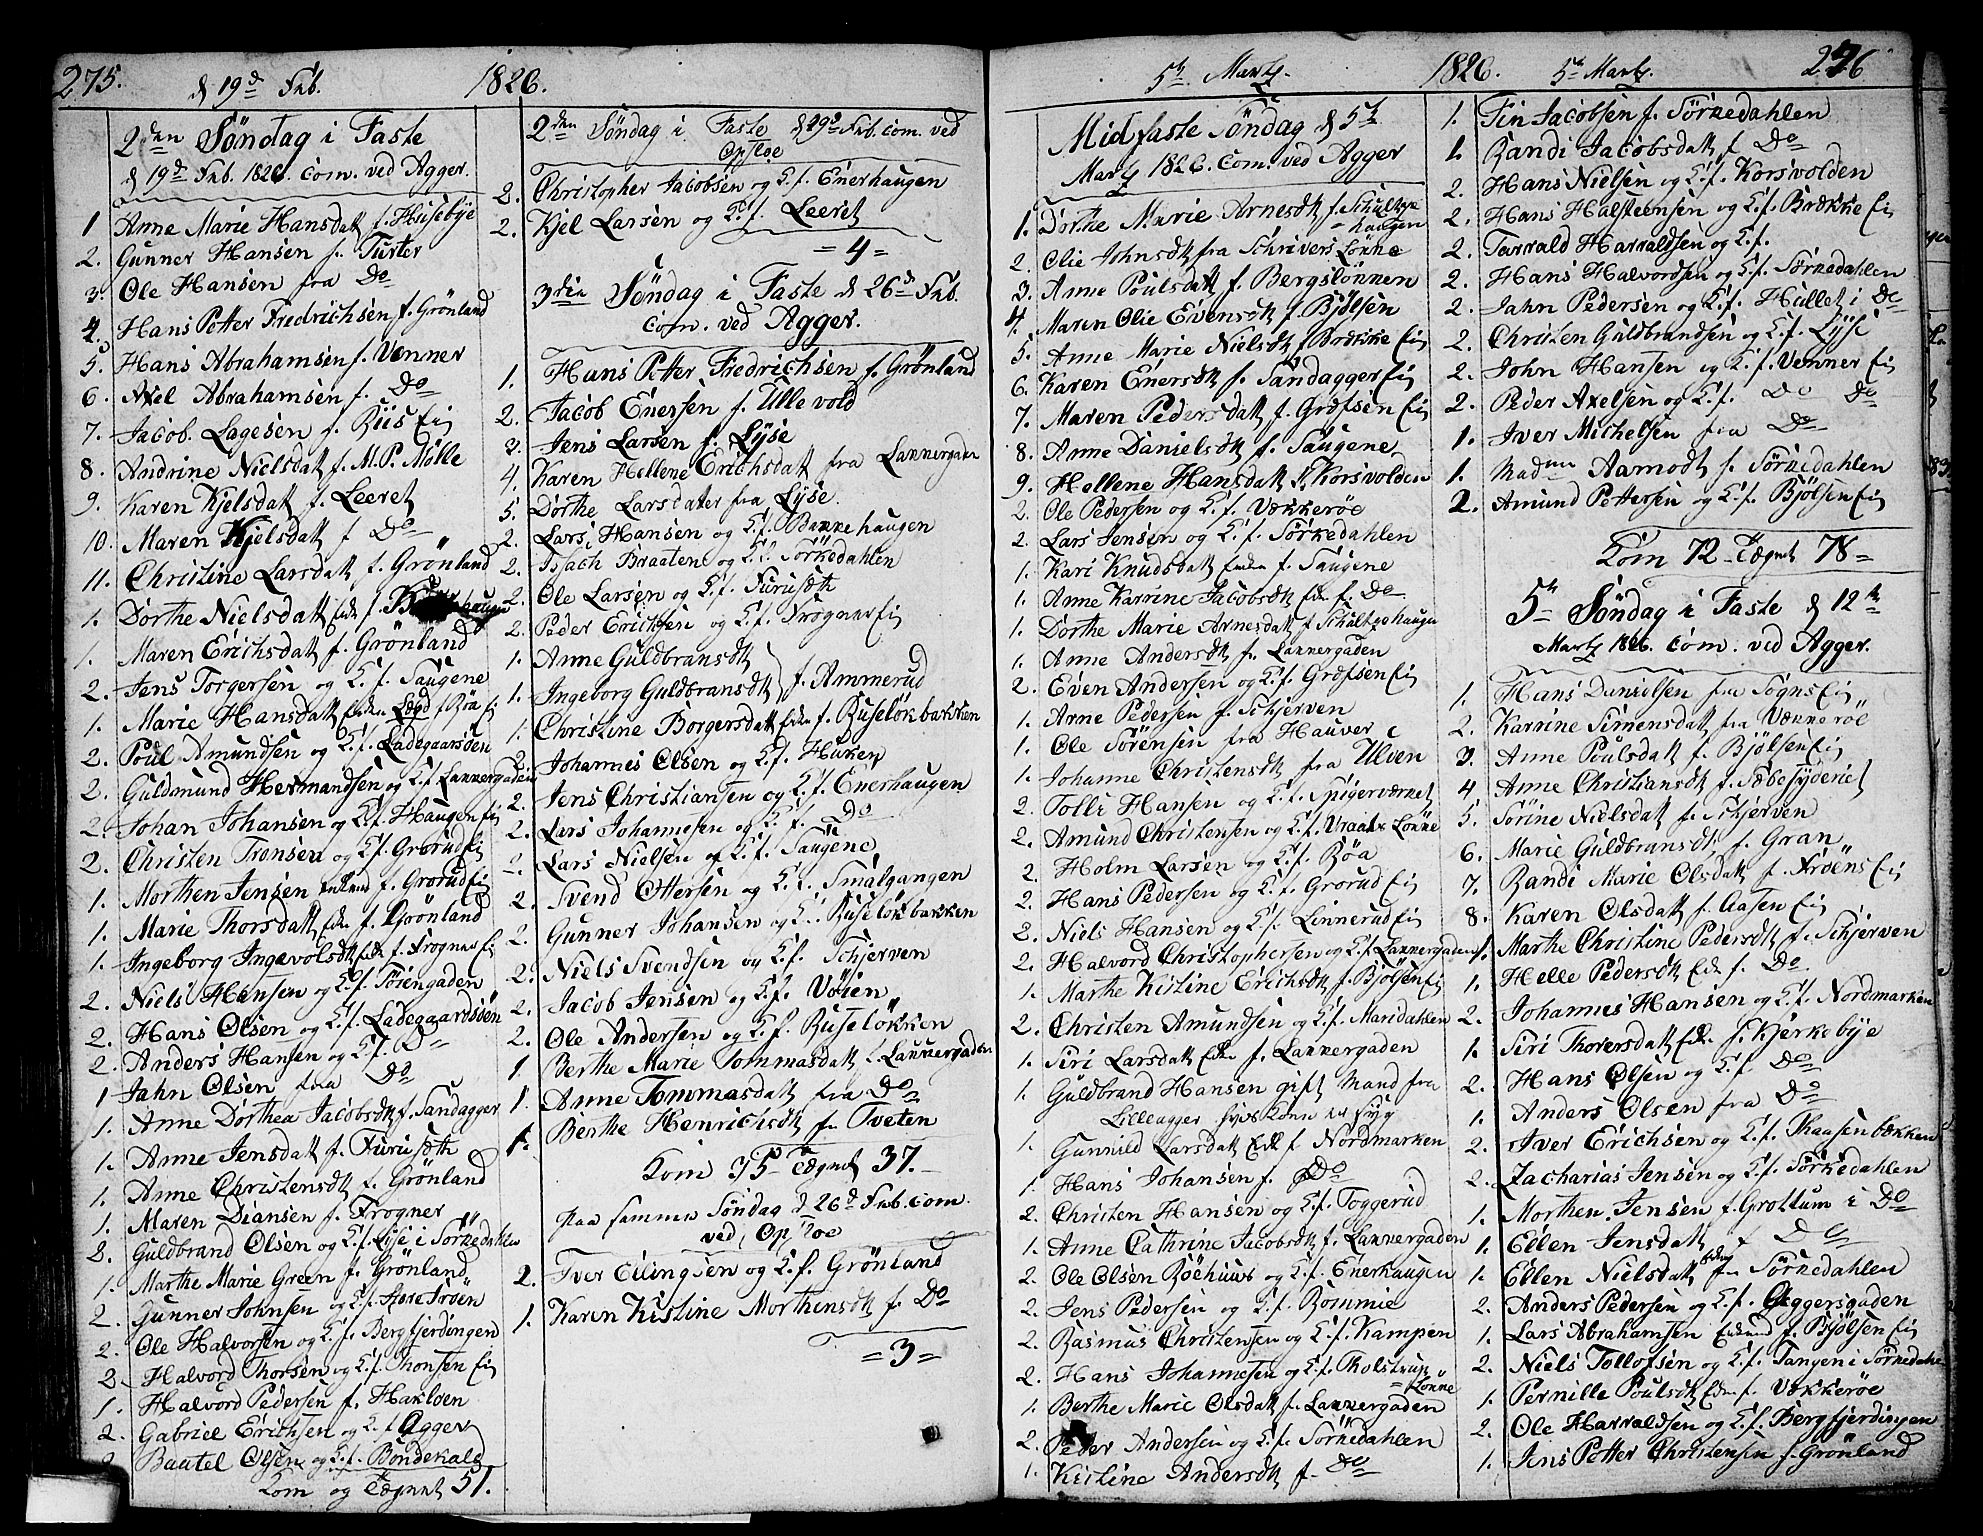 275.
d 19de Feb.
1826.
2den Søndag i Faste
d 19de Feb. 1826. Com. ved Agger.
1 Anne Marie Hansdatt f. Husebye
2. Gunner Hansen f. Turter
3. Ole Hansen fra Do
4. Hans Petter Fredrichsen f. Grönland
5. Hans Abrahamsen f. Venner
6. Axel Abrahamsen f. Do
7. Jacob Lagesen f. Riis Ei
8. Andrine Nielsdatt f. M. P. Mölle
9. Karen Kjelsdatt f. Leeret
10. Maren Kjelsdatt f Do
11. Christine Larsdatt f. Grönland
1. Dorthe Nielsdatt Enke f.
1. Maren Erichsdatt f. Grönland
2. Jens Torgersen og K. f. Saugene
1. Marie Hansdatt Enke Lægd f Röa Ei
2. Poul Amundsen og K. f. Ladegaarsöen
2. Guldmund Hermandsen og K f Lakkergaden
2. Johan Johansen og K. f. Haugen Ei
2. Christen Tronsen og K f. Grorud Ei
1. Morthen Jensen Enkemd f. Grorud Ei
1. Marie Thorsdatt Enke f. Grönland
1. Ingeborg Ingevolsdtt Enke f. Frogner Ei
2. Niels Hansen og K. f. Töiengaden
2. Hans Olsen og K. f. Ladegaardsöen
2. Anders Hansen og K f. Do
1 Jahn Olsen fra Do
1. Anne Dorthea Jacobsdtt f. Sandagger
1. Anne Jensdatt f. Furusæth
1. Anne Christensdtt f. Grönland
1. Maren Diansen f. Frogner
2. Guldbrand Olsen og K. f. Lyse i Sörkedahlen
1. Marthe Marie Green f. Grönland
2. Gunner Johnsen og K. f. Store Fröen
2. Ole Halvorsen og K. f. Bergfjerdingen
2. Halvord Thorsen og K. f. Thonsen Ei
1. Halvord Pedersen f. Hakloen
2. Gabriel Erichsen og K f Agger
2. Bautel Olsen og K. f. Bondekald
Kom og Tægnet 51.
2den Søndag i Faste d 19de Feb. com. ved
Opsloe
2. Christopher Jacobsen og K. f. Enerhaugen
2. Kjel Larsen og K. f. Leeret
= 4 =
3die Søndag i Faste d 26de Feb.
com. ved Agger.
1. Hans Petter Fredrichsen f. Grönland
2. Jacob Enersen f. Ullevold
3. Jens Larsen f. Lyse
4. Karen Hellene Erichsdatt fra Lakkergaden
5. Dorthe Larsdater fra Lyse
2. Lars Hansen og K. f. Bakkehaugen
2. Issach Braaten og K. f. Sörkedahlen
2. Ole Larsen og K. f. Furusæth
2. Peder Erichsen og K. f. Frogner Ei
1. Anne Guldbransdtt
1. Ingeborg Guldbransdtt } f. Ammerud
1. Christine Borgersdatt Enke f. Ruselökbakken
2. Johannes Olsen og K. f. Huken
2. Jens Christiansen og K. f. Enerhaugen
2. Lars Johannesen og K. f. Do
2. Lars Nielsen og K. f. Saugene
2. Svend Ottersen og K. f. Smalgangen
2. Gunner Johansen og K. f. Ruselökbakken
2. Niels Svendsen og K. f. Schjerven
2. Jacob Jensen og K. f. Vöien
2. Ole Andersen og K. f. Ruselökken
1. Berthe Marie Tommasdatt f. Lakkergaden
1. Anne Tommasdatt fra Do
1. Berthe Henrichsdtt fr. Tveten
Kom 35 Tægnet 37.
Paa samme Søndag d 26de Feb. com
ved Opsloe
2. Iver Ellingsen og K. f. Grönland
1. Karen Kistine Morthensdtt f. Do
= 3 =
5te Martz.
1826.
5te Martz.
276
Midfaste Søndag d 5te
Martz 1826. Com. ved Agger
1. Dorthe Marie Arnesdtt f. Schultze
= haugen
2. Olie Johnsdtt fra Schrivers Lökke
3. Anne Poulsdatt f. Bergslökken
4. Maren Olie Evensdtt f. Bjölsen
5. Anne Marie Nielsdtt f. Brække Ei
6. Karen Enersdtt f. Sandagger Ei
7. Maren Pedersdatt f. Grefsen Ei
8. Anne Danielsdtt f. Saugene
9. Hellene Hansdatt f. Korsvolden
2. Ole Pedersen og K. f. Vækkeröe
2. Lars Jensen og K. f. Sörkedahlen
1. Kari Knudsdatt Enke f. Saugene
1. Anne Karrine Jacobsdtt Enke f. Do
1. Dorthe Marie Arnesdatt f Schultzehaugen
1. Anne Andersdtt f. Lakkergaden
2. Even Andersen og K. f. Grefsen Ei
1. Arne Pedersen f. Schjerven
1. Ole Sörensen fra Hauver
1. Johanne Christensdtt fra Ulven
2. Tolli Hansen og K. f. Spigerværket
2. Amund Christensen og K. f. Vraatz Lökke
2. Holm Larsen og K. f. Röa
2. Hans Pedersen og K. f. Grorud Ei
2. Niels Hansen og K. f. Linnerud Ei
2. Halvord Christophersen og K f Lakkergaden
1. Marthe Kistine Erichsdtt f. Bjölsen Ei
2. Christen Amundsen og K. f. Maridahlen
1. Siri Larsdatt Enke f. Lakkergaden
1. Guldbrand Hansen gift Mand fra
Lilleagger hvis Kone er syg
1. Gunnild Larsdatt Enke f. Nordmarken
1. Hans Johansen f. Do
2. Christen Hansen og K. f. Toggerud
1. Anne Cathrine Jacobsdtt f. Lakkergaden
2. Ole Olsen Röehuus og K. f. Enerhaugen
2. Jens Pedersen og K. f. Rommie
2. Rasmus Christensen og K. f. Kampen
2. Hans Johannesen og K. f. Tholstrup
= Lökke
1. Berthe Marie Olsdatt f. Lakkergaden
2. Peder Andersen og K. f. Sörkedahlen
1. Kistine Andersdtt f. Do
1. Fin Jacobsen f. Sörkedahlen
1. Randi Jacobsdatt f Do
2. Hans Nielsen og K. f. Korsvolden
2. Hans Halsteensen og K. f. Brække Ei
2. Tarrald Harraldsen og K. f.
2. Hans Halvordsen og K. f. Sörkedahlen
2. Jahn Pedersen og K. f. Hullet i Do
2. Christen Guldbrandsen og K. f. Lyse
2. John Hansen og K. f. Venner Ei
2. Peder Axelsen og K. f. Do Do
1. Iver Michelsen fra Do
1. Madme Aamodt f. Sörkedahlen
2. Amund Pettersen og K. f. Bjölsen Ei
Kom 72 Tægnet 78 =
5te Søndag i Faste d 12te
Martz 1826. com. ved Agger.
1. Hans Danielsen fra Sogns Ei
2. Karrine Simensdatt fra Vækkeröe
3. Anne Poulsdatt f. Bjölsen Ei
4 Anne Christiansdtt f. Sæbesyderiet
5. Sörine Nielsdatt f. Schjerven
6. Marie Guldbransdtt f. Gran
7. Randi Marie Olsdatt f. Fröens Ei
8. Karen Olsdatt f. Aasen Ei
1. Marthe Christine Pedersdtt f. Schjerven
1. Helle Pedersdtt Enke f. Do
2. Johannes Hansen og K. f. Nordmarken
1. Siri Thoversdatt Enke f. Kjerkebye
2. Hans Olsen og K. f. Do
1. Anders Olsen fra Do
2. Iver Erichsen og K. f. Thaasenbækken
2. Zacharias Jensen og K. f. Sörkedahlen
1. Morthen Jensen f. Grottum i Do
1. Ellen Jensdatt f Do
1. Ellen Nielsdatt Enke f. Sörkedahlen
2. Anders Pedersen og K. f. Geggersgaden
1. Lars Abrahamsen Enkemd f. Bjölsen Ei
2. Niels Tollofsen og K. f. Tangen i Sörkedahle
1. Pernille Poulsdtt Enke f. Vækkeröe
2. Ole Harraldsen og K. f. Bergfjerdingen
1. Jens Petter Christensen f. Grönland